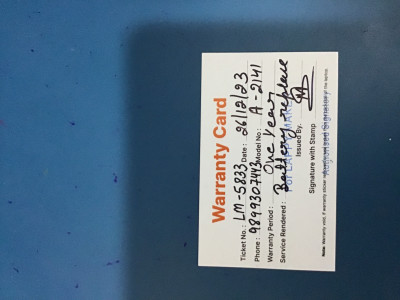 Warranty Card
Ticket No.: LM-5833 Date: 26/12/23
Phone: 9899307443 Model No: A-2141
Warranty Period: One Year
Service Rendered: Battery replace
Issued By.
Signature with Stamp
Authorised Signatory